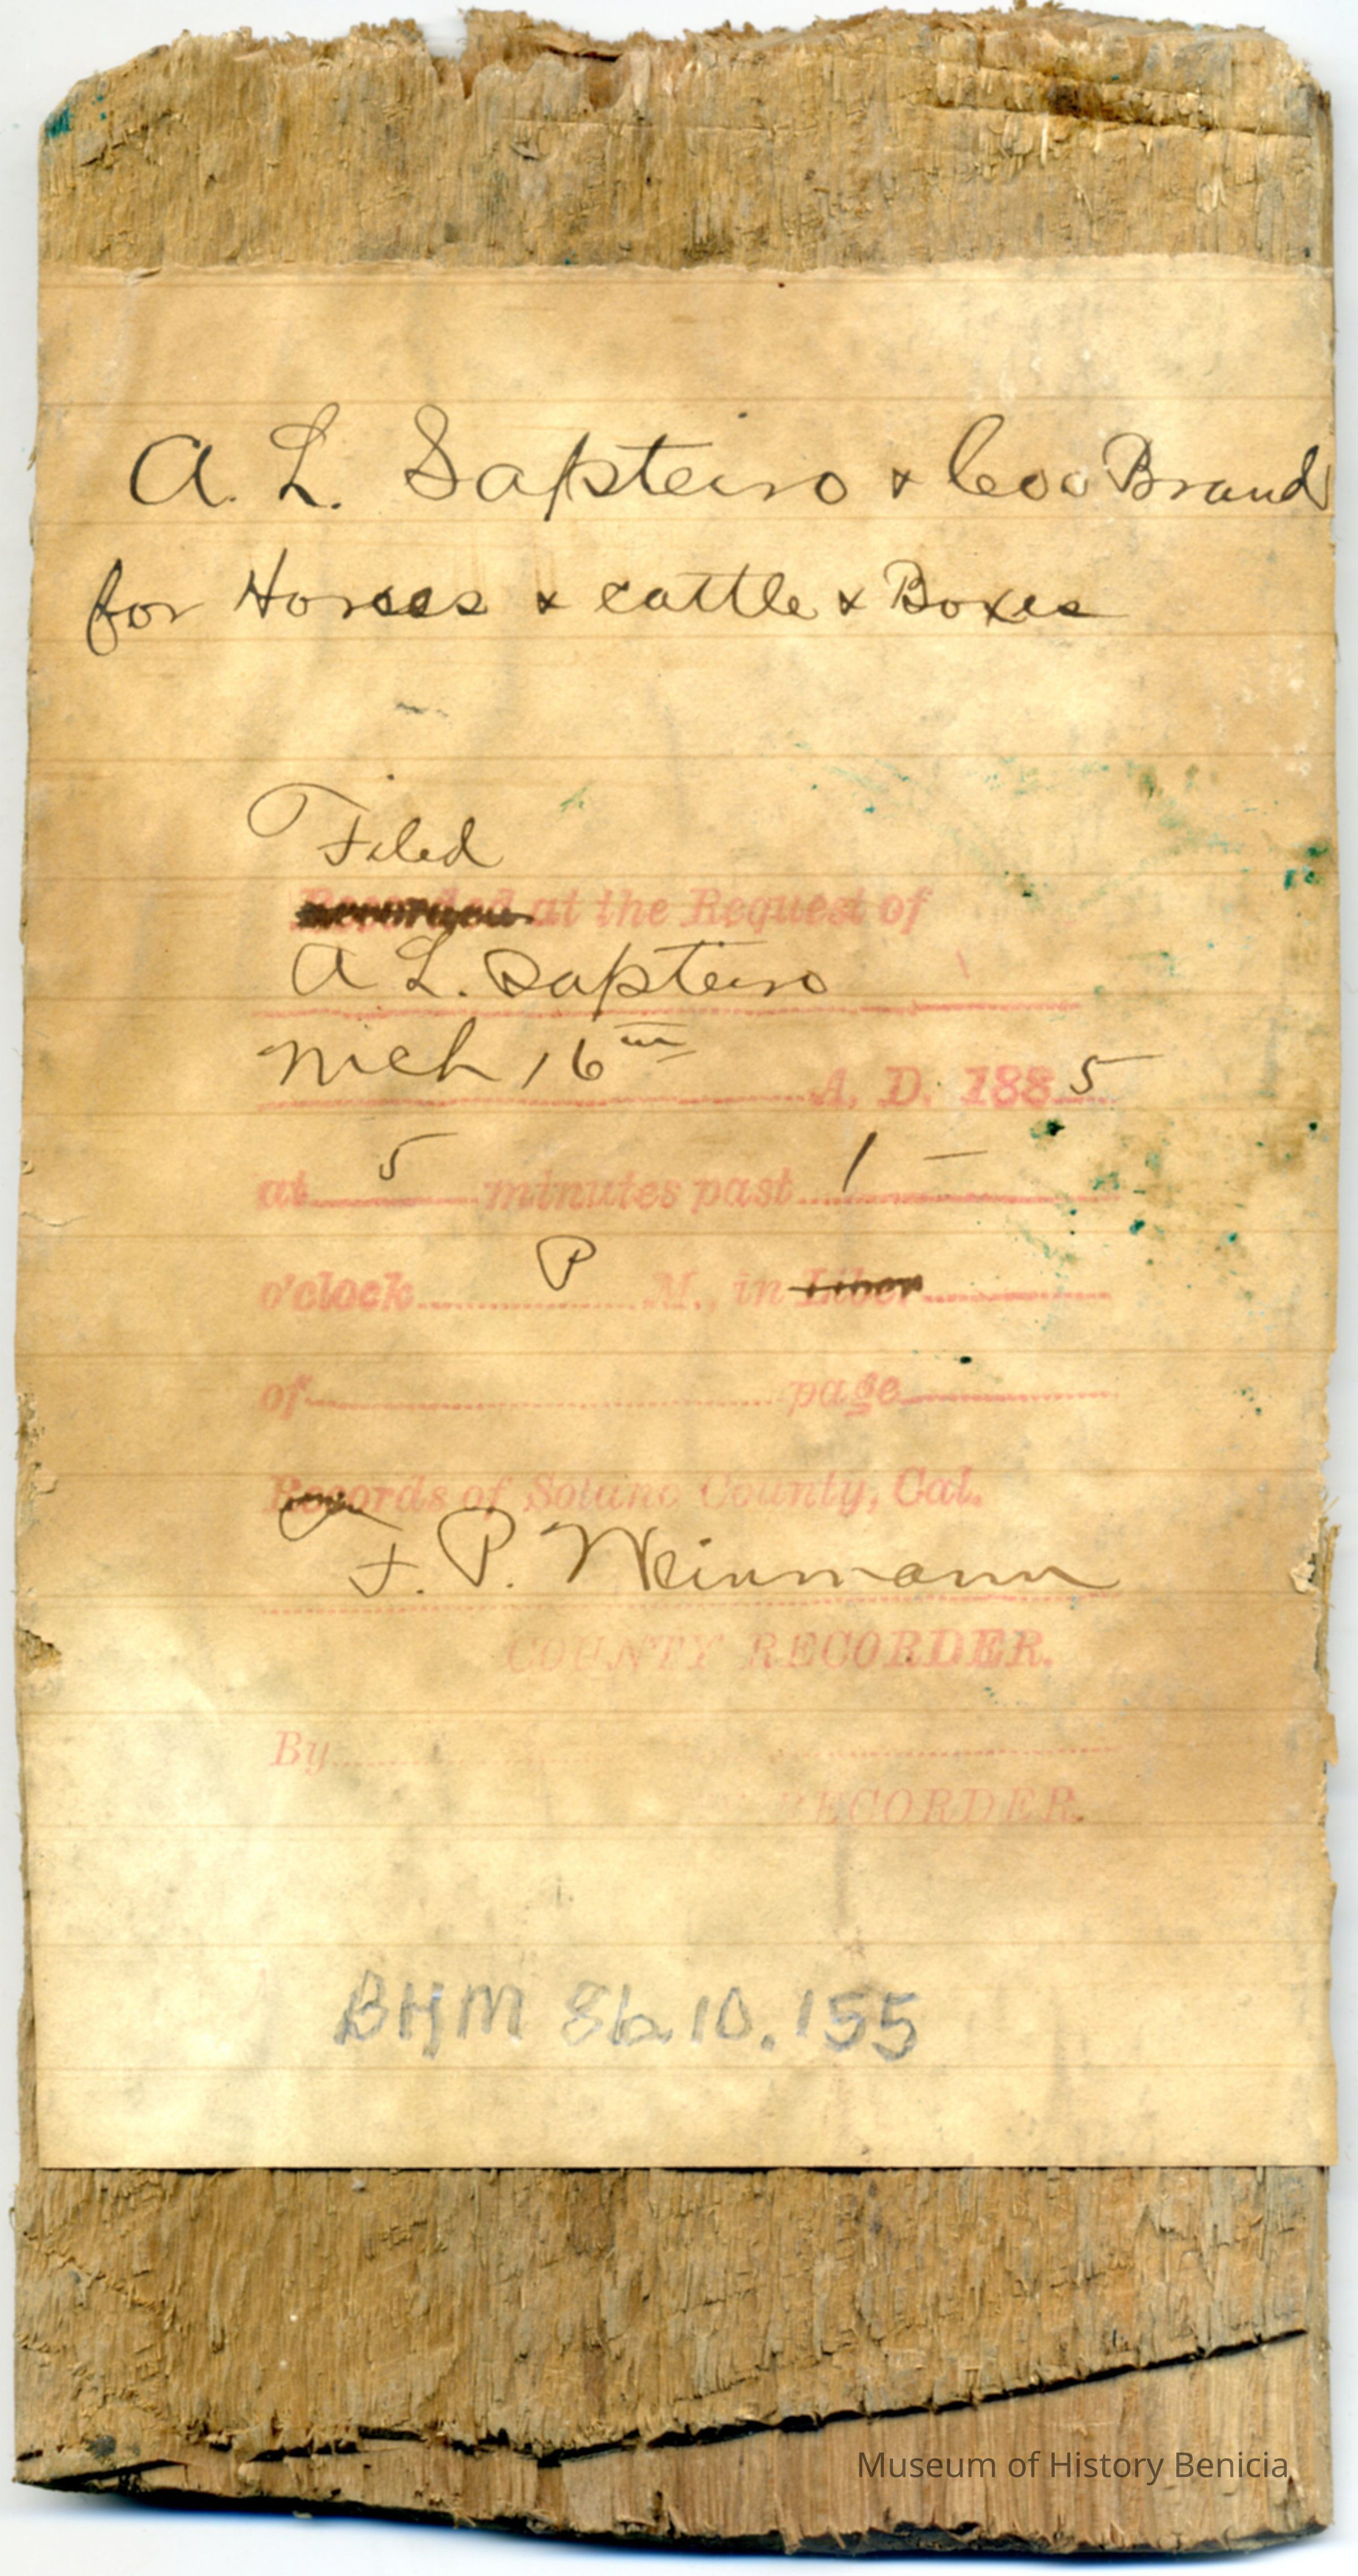 A. L. Sapteiro & Coo Brand
for Horses & cattle & Boxes
Filed
Recorded at the Request of
A L. Sapteiro
Mch 16th A. D. 1885
at 5 minutes past 1 —
o'clock P M., in Liber
of page
Records of Solano County, Cal.
F. P. Weinmann
COUNTY RECORDER.
By
RECORDER.
BHM 86.10.155
Museum of History Benicia